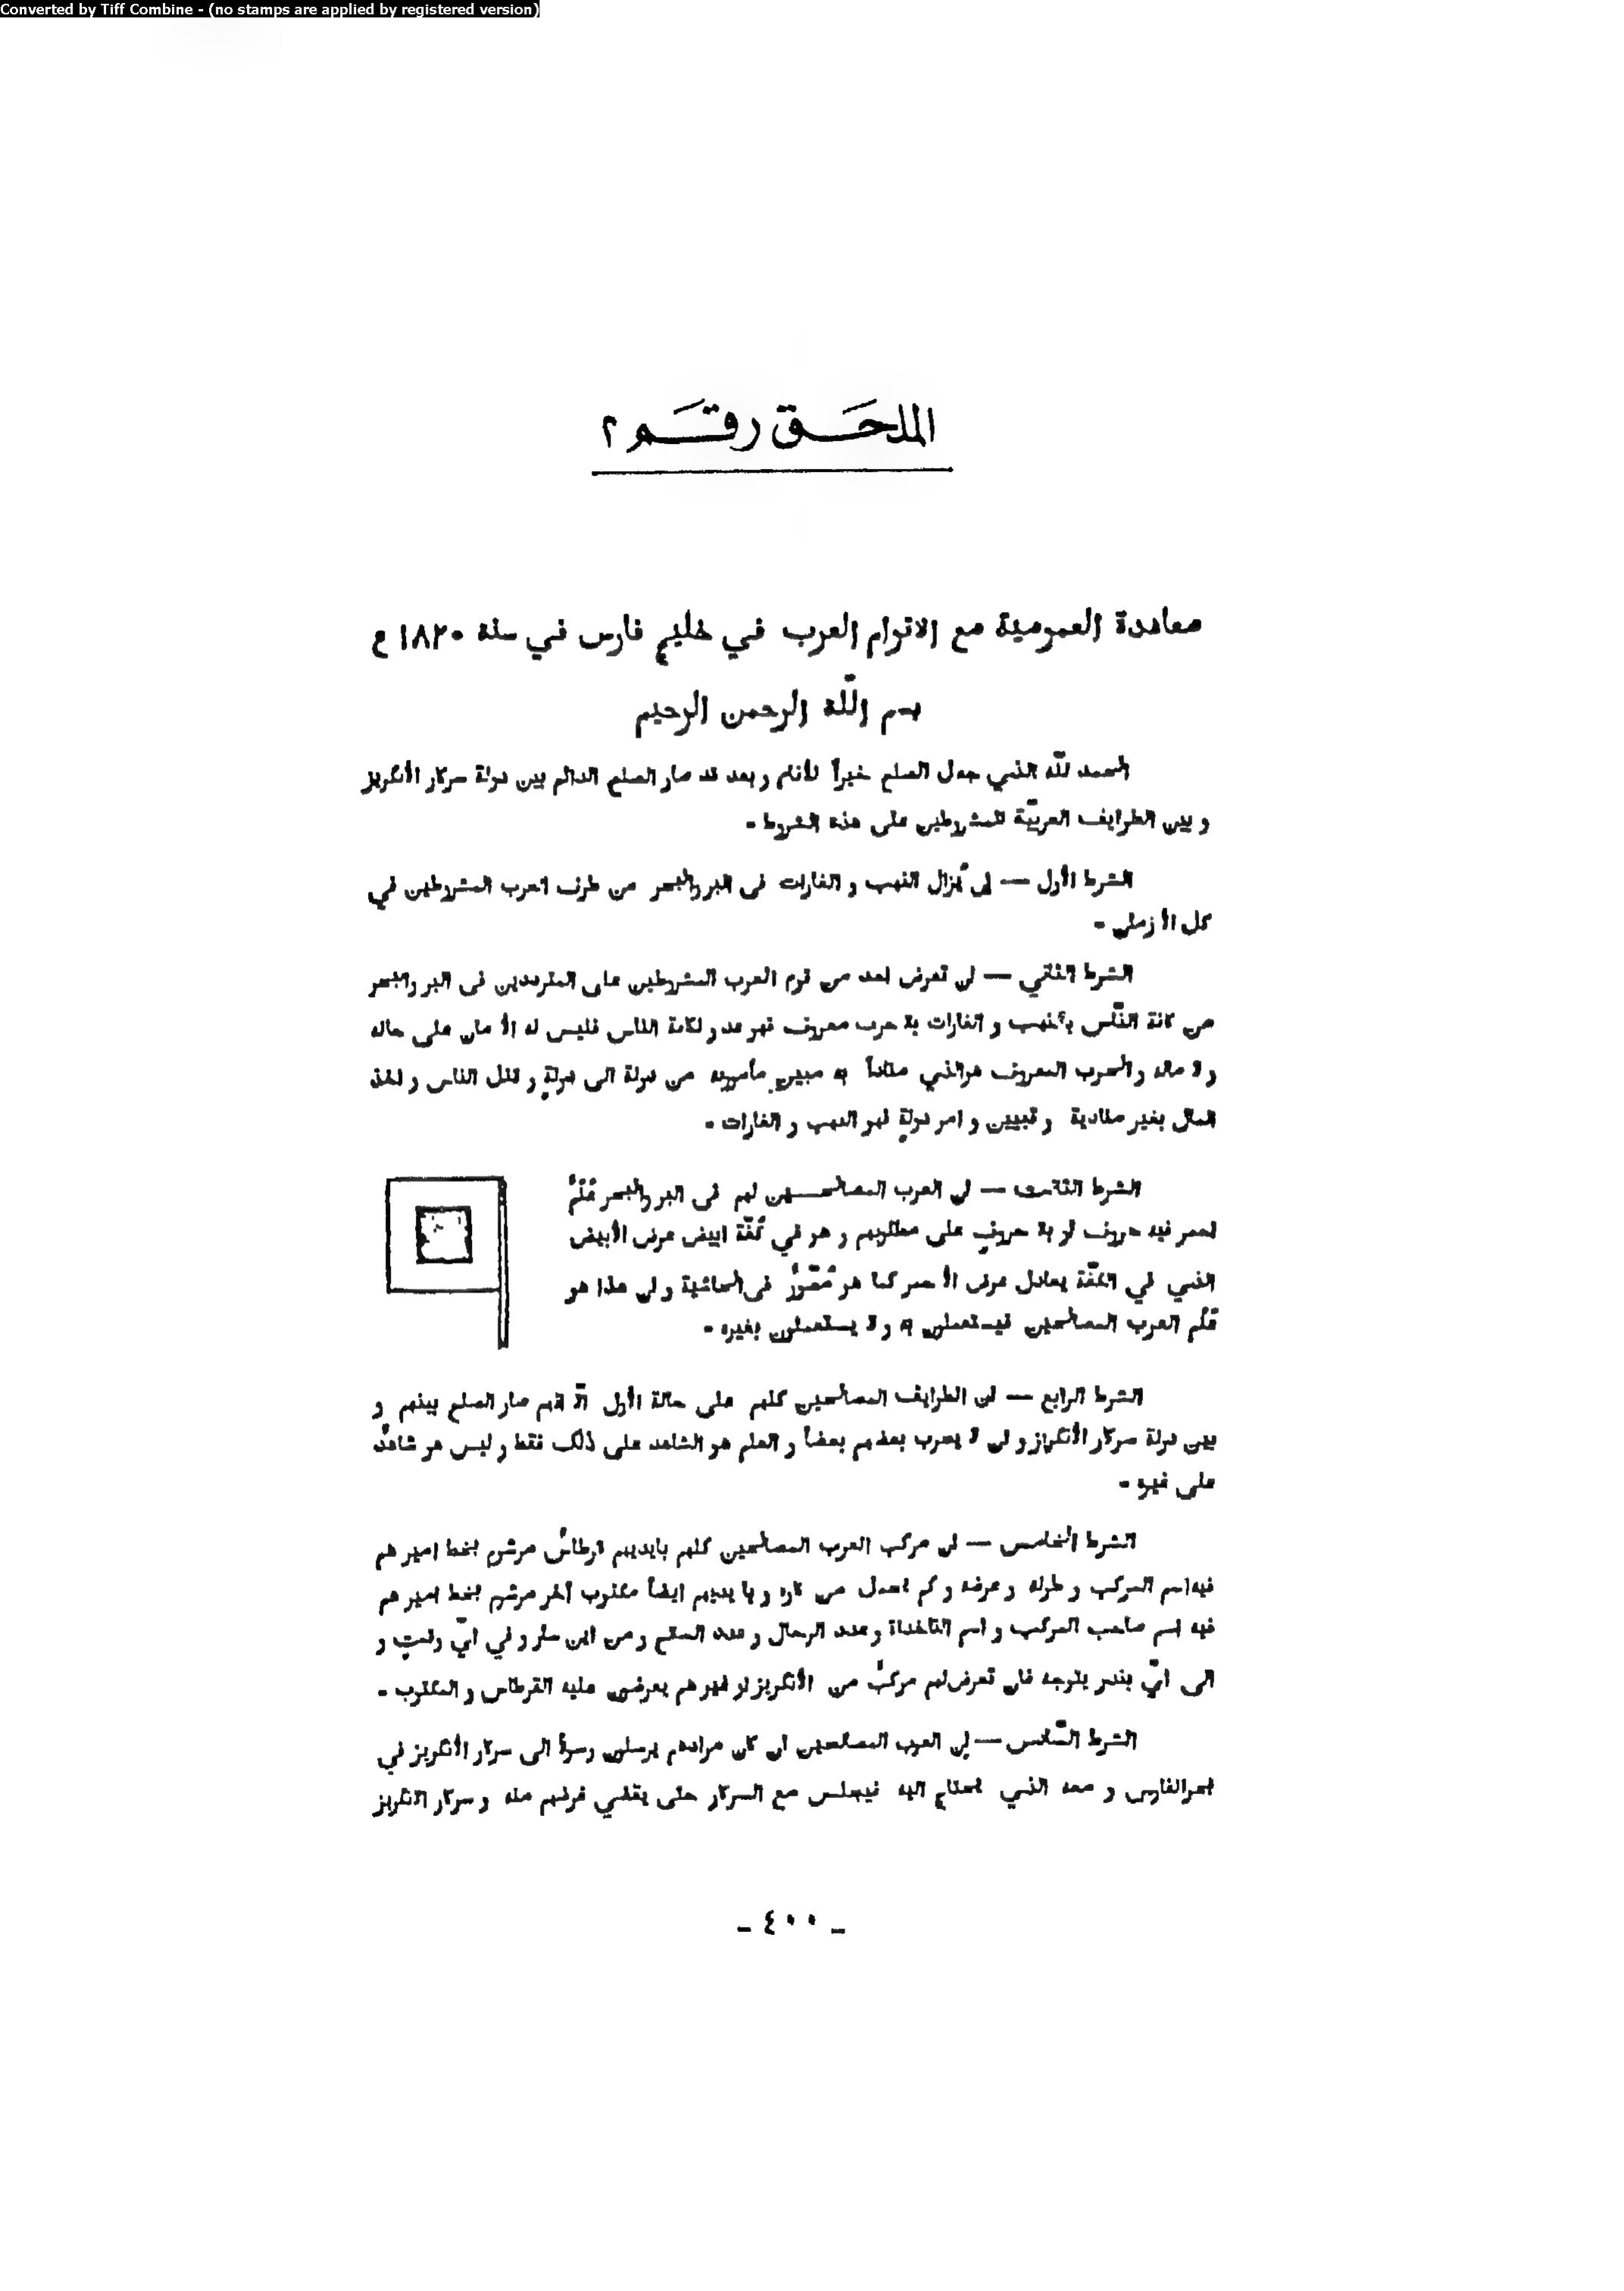 Converted by Tiff Combine - (no stamps are applied by registered version)
الملحق رقم ٢
معاهدة العمومية مع الاقوام العرب في خليج فارس في سنة ١٨٢٠ ع
بسم اللّه الرحمن الرحيم
الحمد للّه الذي جعل الصلح خيراً للأنام و بعد قد صار الصلح الدائم بين دولة سركار الأنكريز
و بين الطوايف العربيّة المشروطين على هذه الشروط -
الشرط الأول — ان يُزال النهب و الغارات فى البر والبحر من طرف العرب المشروطين في
كل الأزمان -
الشرط الثاني — ان تعرض احد من قوم العرب المشروطين على المترددين فى البر والبحر
من كافة النّاس بالنهب و الغارات بلا حرب معروف فهو عدو لكافة الناس فليس له الأمان على حاله
و لا ماله و الحرب المعروف هوالذي منادأ به مبين مأمور به من دولة الى دولةٍ و قتل الناس و اخذ
المال بغير منادية و تبيين و امر دولةٍ فهو النهب و الغارات -
الشرط الثالث — ان العرب المصالحـــين لهم فى البر والبحر عَلَمٌ
احمر فيه حروف او بلا حروفٍ على مطلوبهم و هو في كُفّة ابيض عرض الأبيض
الذي في الكفّة يعادل عرض الأحمر كما هو مُصَّورٌ فى الحاشية و ان هذا هو
عَلَم العرب المصالحين فيستعملون به و لا يستعملون بغيره -
الشرط الرابع — ان الطوايف المصالحين كلهم على حالة الأول الّا انّهم صار الصلح بينهم و
بين دولة سركار الأنكريز و ان لا يحرب بعضهم بعضاً و العلم هو الشاهد على ذلك فقط و ليس هو شاهدٌ
على غيره -
الشرط الخامس — ان مركب العرب المصالحين كلهم بايديهم قرطاسٌ مرشوم بخط اميرهم
فيه اسم المركب و طوله و عرضه و كم يحمل من كاره و بايديهم ايضاً مكتوب آخر مرشوم بخط اميرهم
فيه اسم صاحب المركب و اسم الناخداة و عدد الرجال و عدد السلاح و من اين سار و في ايّ وقتٍ و
الى ايّ بندر يتوجه فان تعرض لهم مركبٌ من الأنكريز او غيرهم يعرضون عليه القرطاس و المكتوب -
الشرط السّادس — ان العرب المصالحين ان كان مرادهم يرسلون رسولاً الى سركار الأنكريز في
بحرالفارس و معه الذي يحتاج اليه فيجلس مع السركار حتى يقضي غرضهم منه و سركار الانكريز
- ٤٠٠ -